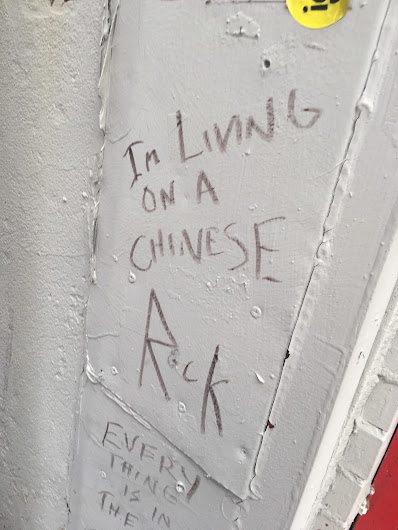 Im LIVING
ON A
CHINESE
RocK
EVERY
THING
IS IN
THE